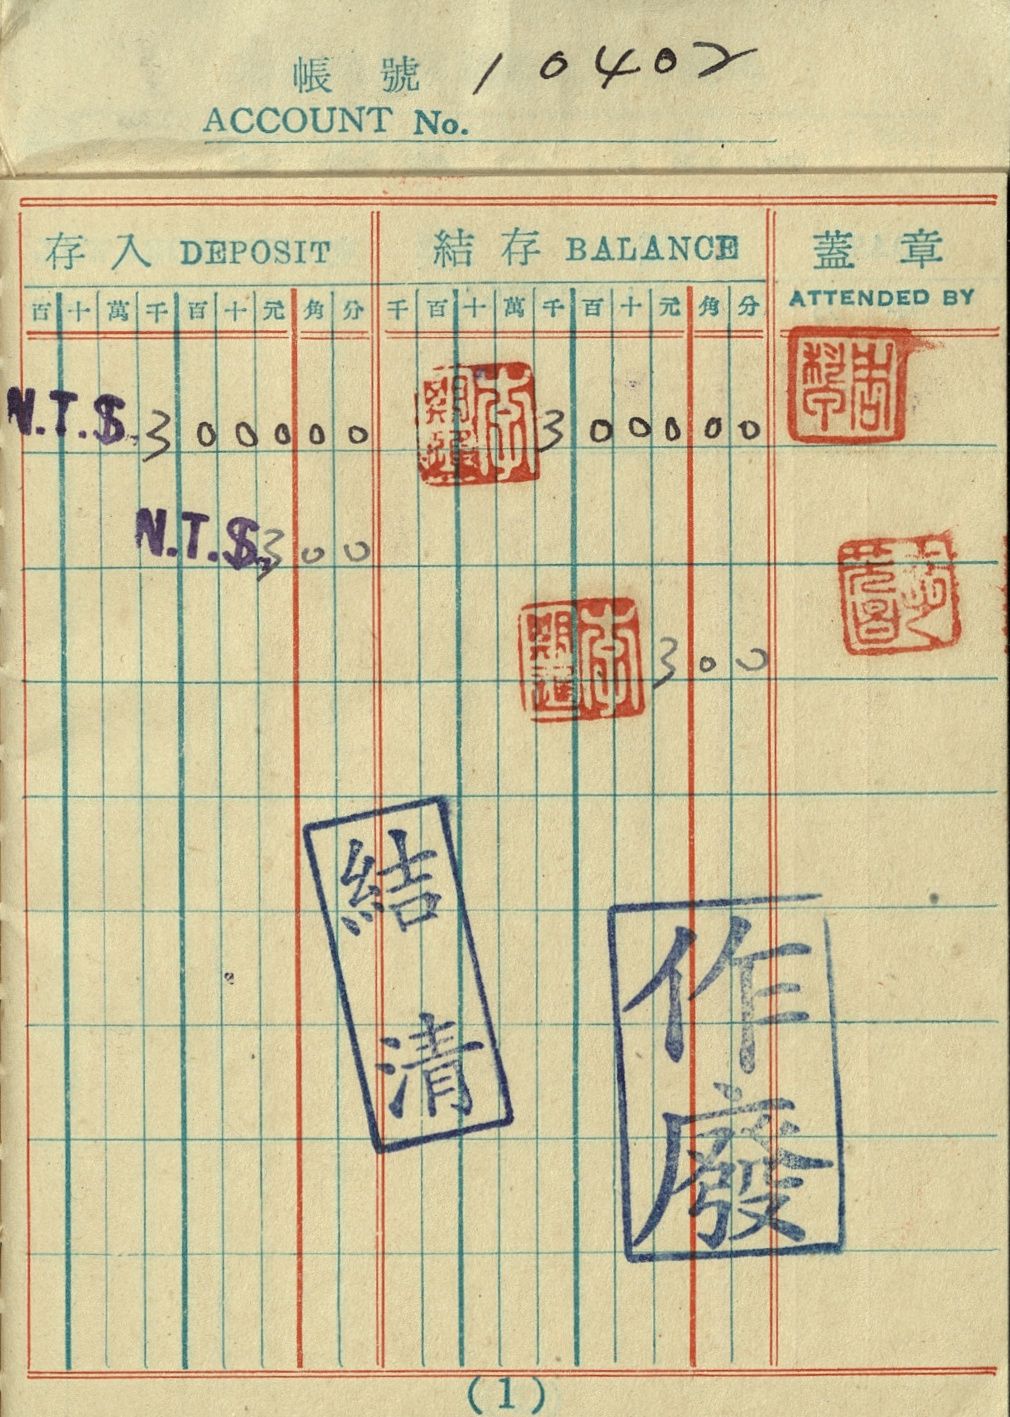 帳號 10402
ACCOUNT No.
存入 DEPOSIT 結存 BALANCE 蓋章
ATTENDED BY
百十萬千百十元角分 千百十萬千百十元角分
N.T.$ 3 0 0 0 0 0 3 0 0 0 0 0
N.T.$ 3 0 0
3 0 0
結清
作廢
(1)